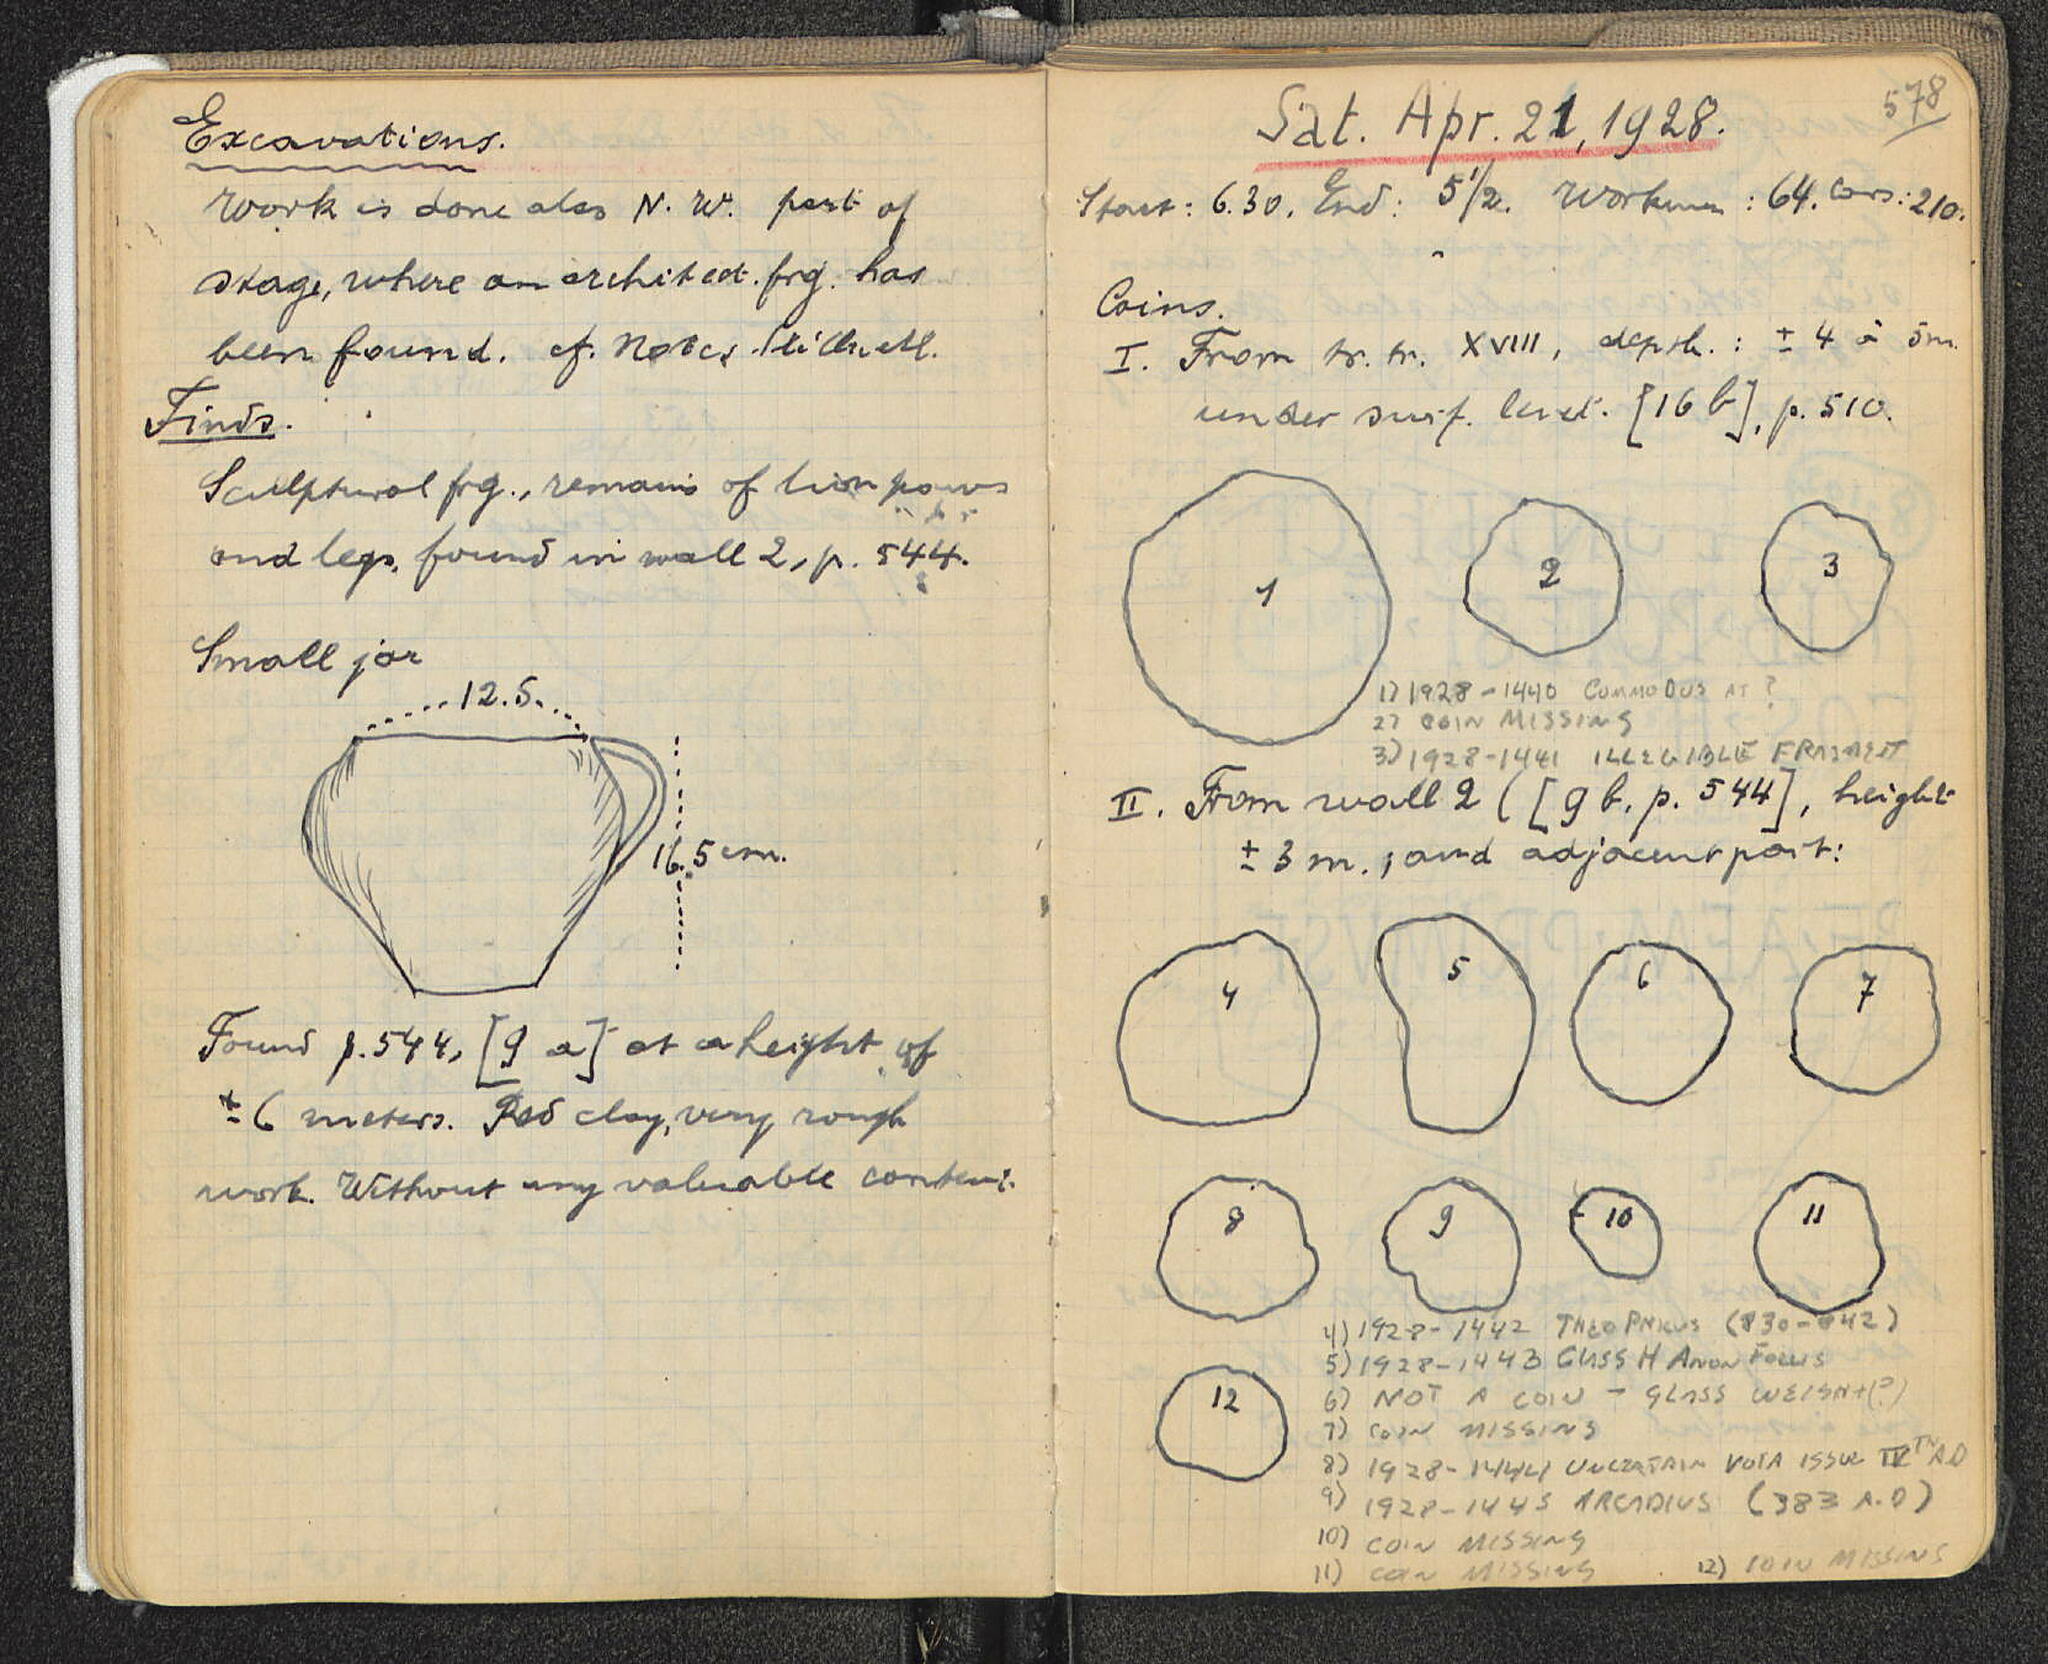 Excavations.
Work is done also N.W. part of
stage, where an architect. frg. has
been found. cf. Notes Stillwell.
Finds.
Sculptural frg., remains of lion paws
and legs, found in wall 2, p. 544.
Small jar
12.5
16.5 cm.
Found p. 544, [9 a] at a height of
± 6 meters. Red clay, very rough
work. Without any valuable content.
578
Sat. Apr. 21, 1928.
Start: 6.30. End: 5 1/2. Workmen: 64. Cars: 210.
Coins.
I. From tr. tr. XVIII, depth.: ± 4 à 5m.
under surf. level. [16 b], p. 510.
1 2 3
1) 1928-1440 COMMODUS AT ?
2) COIN MISSING
3) 1928-1441 ILLEGIBLE FRAGMENT
II. From wall 2 ( [9 b, p. 544], height
± 3 m.; and adjacent part:
4 5 6 7
8 9 10 11
4) 1928-1442 THEOPHILUS (830-842)
5) 1928-1443 CLASS H ANON FOLLIS
12
6) NOT A COIN - GLASS WEIGHT(?)
7) COIN MISSING
8) 1928-1444 UNCERTAIN VOTA ISSUE IVTH AD
9) 1928-1445 ARCADIUS (383 A.D)
10) COIN MISSING
11) COIN MISSING 12) COIN MISSING